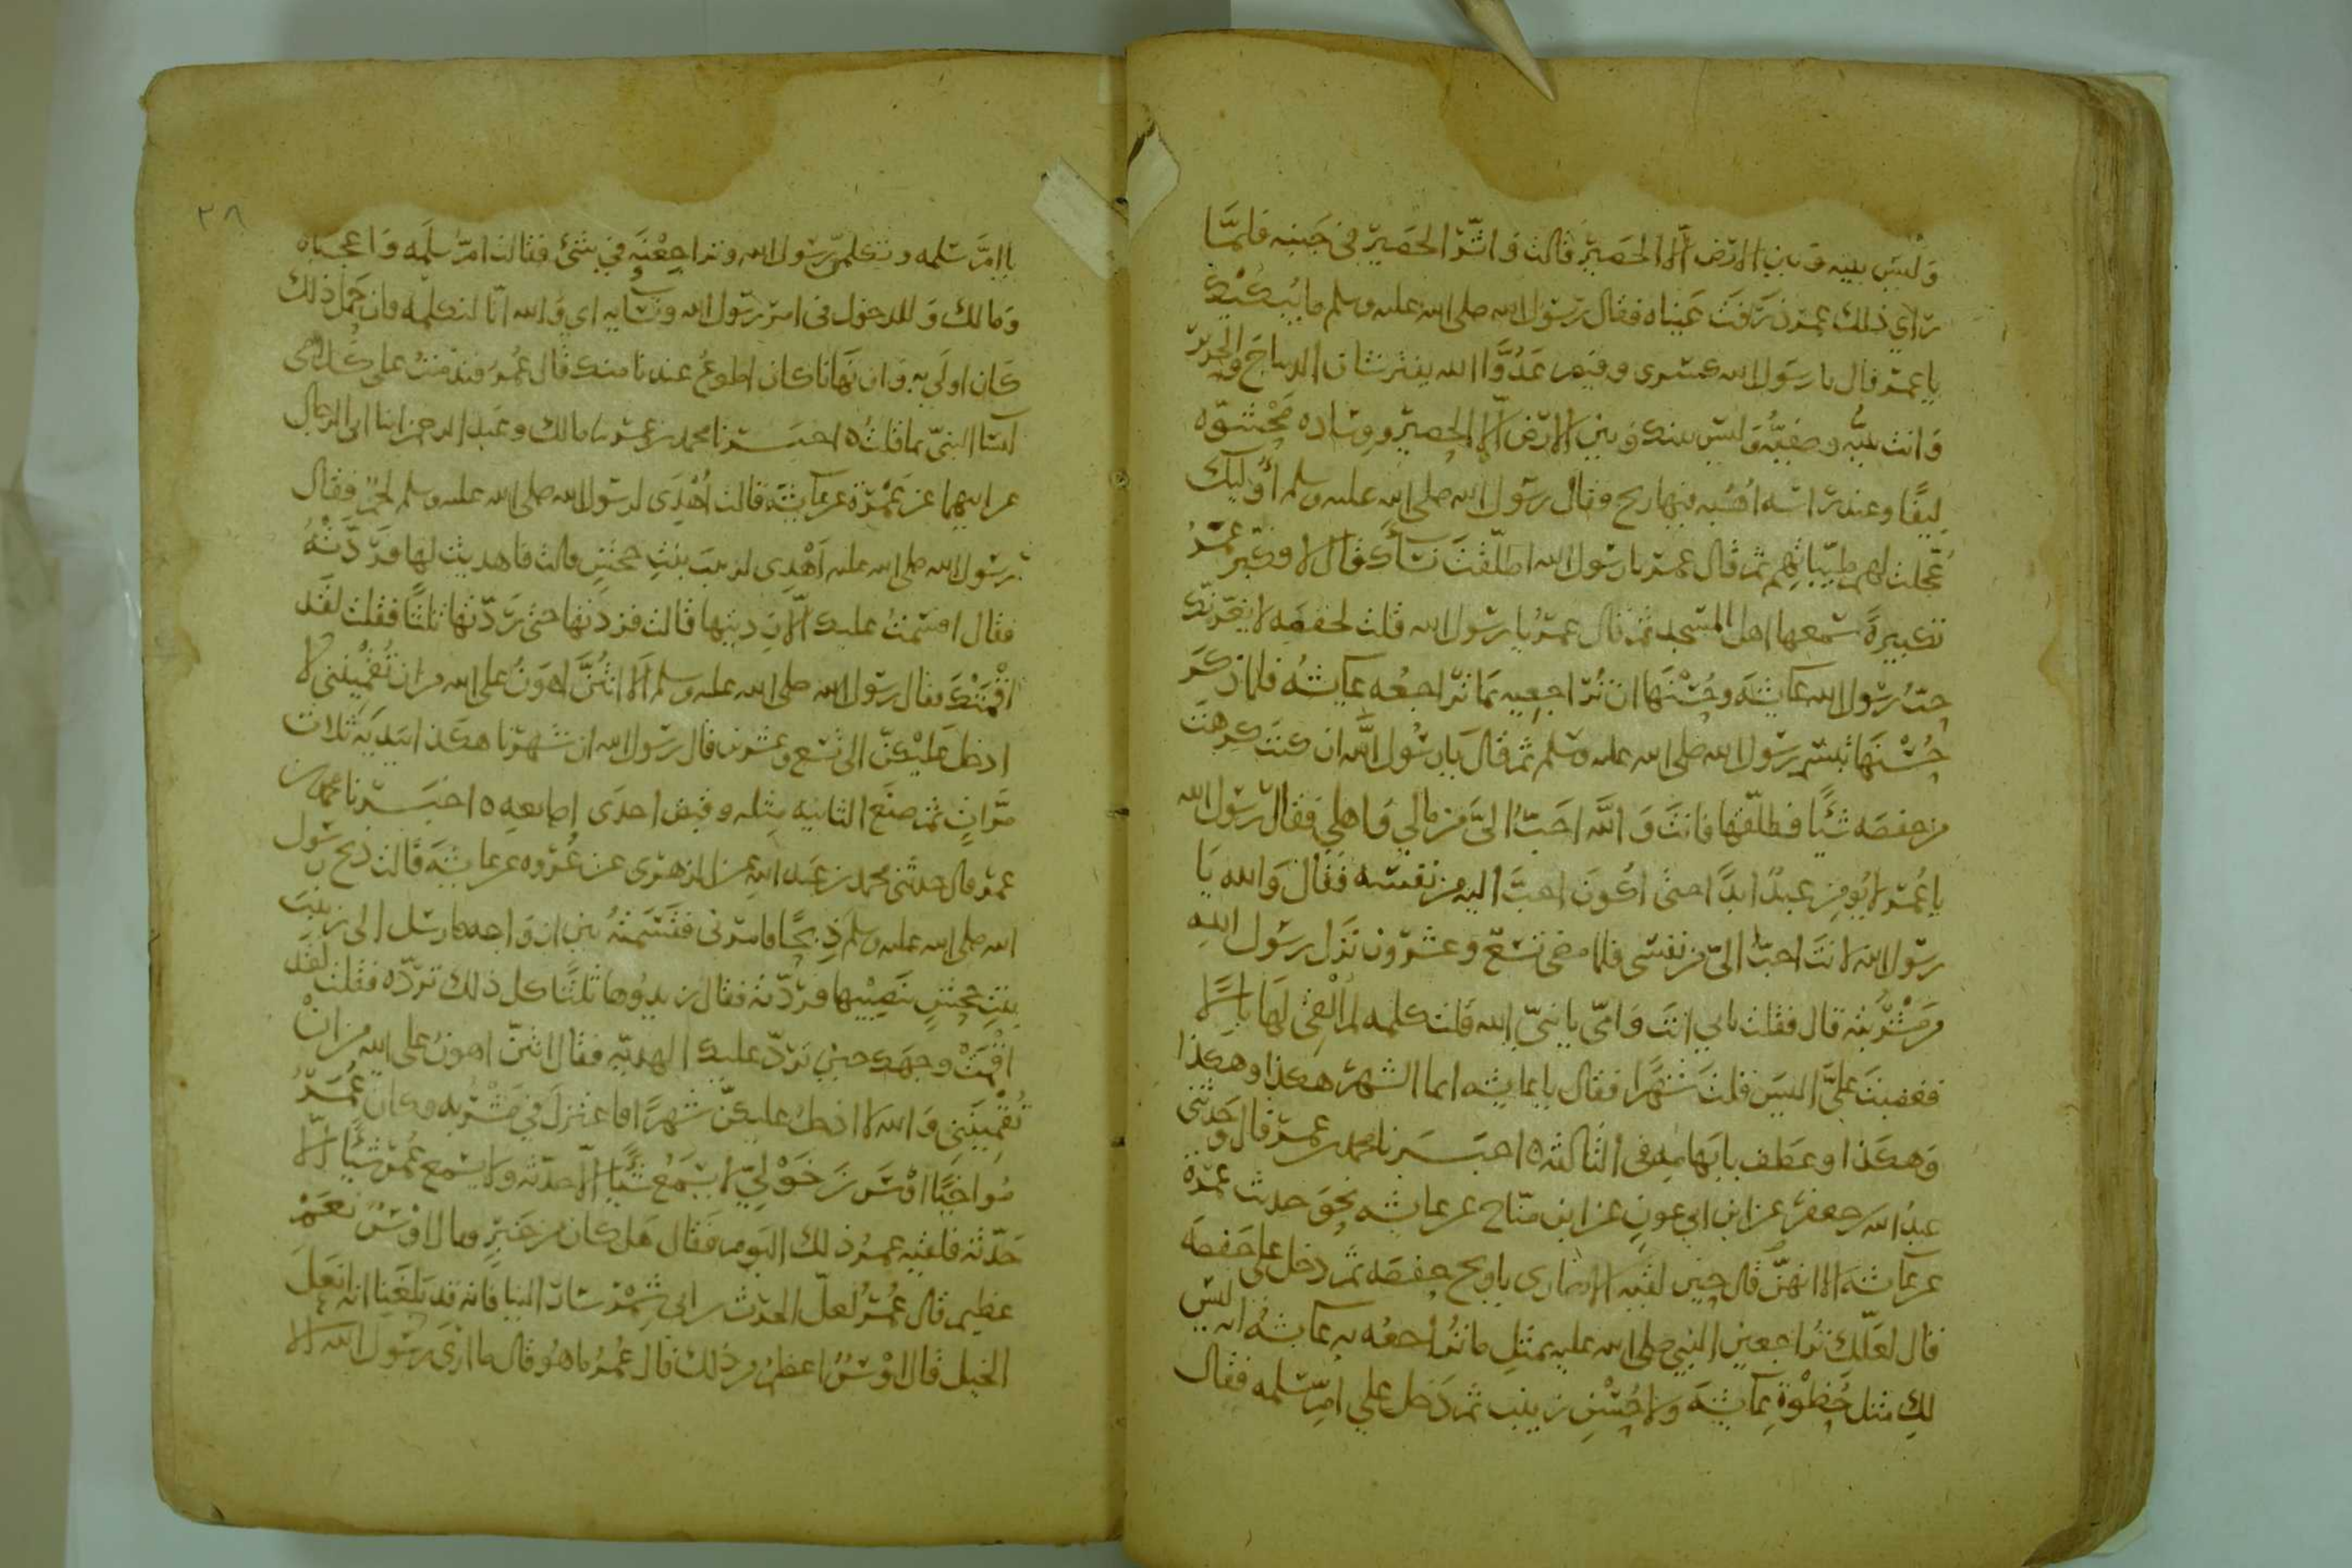 وَليسَ بينه وَبين الارض الّا الحصير قالت وَاثّر الحصير في جَنبه فلمّا
رَاي ذلك عمر ذرَفَت عَيناه فقال رسول الله صلى الله عليه وسلم ما يُبكيك
يا عمر قال يا رسول الله كسرى وقيصر عَدُوَّا الله يفترشان الديباج والحرير
وَانت نبيُّه وصفيُّه وَليس بينك وَبين الارض الّا الحصير ووسَاده محشوّه
لِيفًا وعند راسه اُهُبُه فيها ريح وقال رسول الله صلى الله عليه وسلم اُوليك
عُجّلت لهم طيّباتهم ثم قال عمر يا رسول الله اطلّقتَ نسَأك قال لا وكبّر عمرُ
تكبيرةً سمعها اهل المسجد ثم قال عمرُ يا رسول الله قلت لحفصَه لا يغرّنك
حبّ رسول الله عائشَه وحُسْنهَا ان تُراجعيه بمَا تراجعُه عائشهُ فلما ذكرَ
حُسْنهَا تبسّم رسول الله صلى الله عليه وسلم ثم قالَ يا رسُول الله ان كنتَ كرهتَ
من حفصَه شيًا فطلّقها فانتَ وَالله احَبُّ الىَّ من مالي وَاهلي فقال رسول الله
يا عُمر لا يُومن عبدٌ ابدًا حتى اكُونَ احبَّ اليه من نفسه فَقال وَالله يَا
رسول الله لانتَ احبّ الىّ من نفسى فلما مضى تسع وعشرون نزل رسول الله
من مَشْرُبته قال فقلت بابي انتَ وَامّي يا نبىّ الله قلت كلمه لم اُلْقِ لهَا بالًا
فغضبتَ علىَّ اليسَ قلتَ شَهْرًا فقال يا عايشه انما الشهر هكذا وهكذا
وَهكذا وعطف بابهامه فى الثالثه ٥ اخبَسرنا محمد بن عمر قال وحَدثنى
عبدُ الله بن جعفر عن ابن ابي عون عن ابن منّاح عن عايشه نحوَ حديث عمرة
عن عائشَه الا انهُ قال حين لقيه الانصارى يا ويح حفصَه ثم دخل على حَفصَه
قال لعلّك تراجعين النبي صلى الله عليه بمثلِ ما تُراجعُه به عائشهُ انه ليسَ
لكِ مثل حُظْوةِ عائشَه وَلا حُسْنِ زينب ثم دَخل علي امّ سلمه فقال
يا امَّ سَلمه وتكلمين رسُول الله وتراجعْنَه في شئ فقالت امّ سَلمَه وَاعجباه
وَما لك وَللدخول فى امر رسُول الله ونسَايه اي وَالله انّا لنكلّمه فان حَمل ذلك
كان اولَي به وَان نهَانا كان اطوعُ عندنا منك قال عُمرُ فندمتُ على كلامى
لنسَا النبىّ بما قلتُ ٥ اخبَسرنا محمد بن عمر نا مالك وعَبد الرحمن ابنا ابى الرجال
عن ابيهما عن عَمْرَة عن عائشَة قالت اُهْدِىَ لرسول الله صلى الله عليه وسلم لحمٌ فقال
رسول الله صلى الله عليه اَهْدِى لزينب بنتِ جحشٍ قالت فاهديتُ لها فرَدّتْهُ
فقال اقسَمتُ عليك الّا زِدتِيها قالت فزدتُها حتى رَدّتها ثلثًا فقلت لقَد
اقْمَتْكَ فقال رسول الله صلى الله عليه وسلم اَلَا انتُنَّ اهْوَنُ على الله من ان تُقمِئْنني لا
ادخل عليكنّ الى تسع وعشرين قال رسول الله ان شهرنا هكذا بيديه ثلاث
مرّاتٍ ثم صنَع الثانيه مثله وقبض احدَى اصابعه ٥ اخبَسرنا محمد بن
عمر قال حدثنى محمد بن عَبد الله عن الزهرى عن عُروه عن عايشَه قالت ذبح رسول
الله صلى الله عليه وسلم ذِبحًا فامرنى فقسَمتُه بين ازوَاجه فارسَل الى زينبَ
بنتِ جحشٍ نَصِيبها فردّته فقال زيدُوها ثلثًا كل ذلك تردّه فقلتُ لقد
اقْمَتْ وجهَك حين تردّ عليك الهديّه فقال انتنّ اهونُ على الله من انْ
تُقْمِئنَنِي وَالله لا ادخلُ عليكنّ شهرًا فاعتزلَ في مَشْرُبه وكان عُمَرُ
مُواخيًا اوْسَ بن خَوْلِىّ لا يسْمَعُ شيًّا الّا حدّثه ولا يسمع عُمر شيًّا الّا
حَدّثه فلقيه عمرُ ذلك اليَوم فقال هَل كان من خبرٍ وقال اوْسُ نعَمْ
عظيم قال عُمرُ لعلّ الحرث بن ابي شِمْر سَارَ الينا فانه قد بَلغَنا انه انعَلَ
الخيل قال اوْسُ اعظمُ من ذلك قال عُمرُ ما هُو قال ما ارَى رسُول الله الا
٢٨